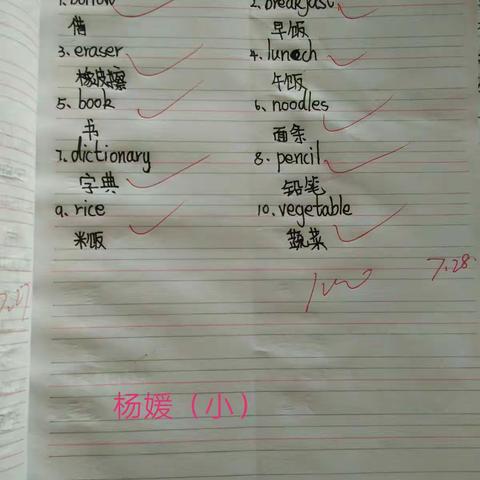 1. borrow 2. breakfast
借 早饭
3. eraser 4. lunch
橡皮擦 午饭
5. book 6. noodles
书 面条
7. dictionary 8. pencil
字典 铅笔
9. rice 10. vegetable
米饭 蔬菜
7.28.
100
杨媛（小）